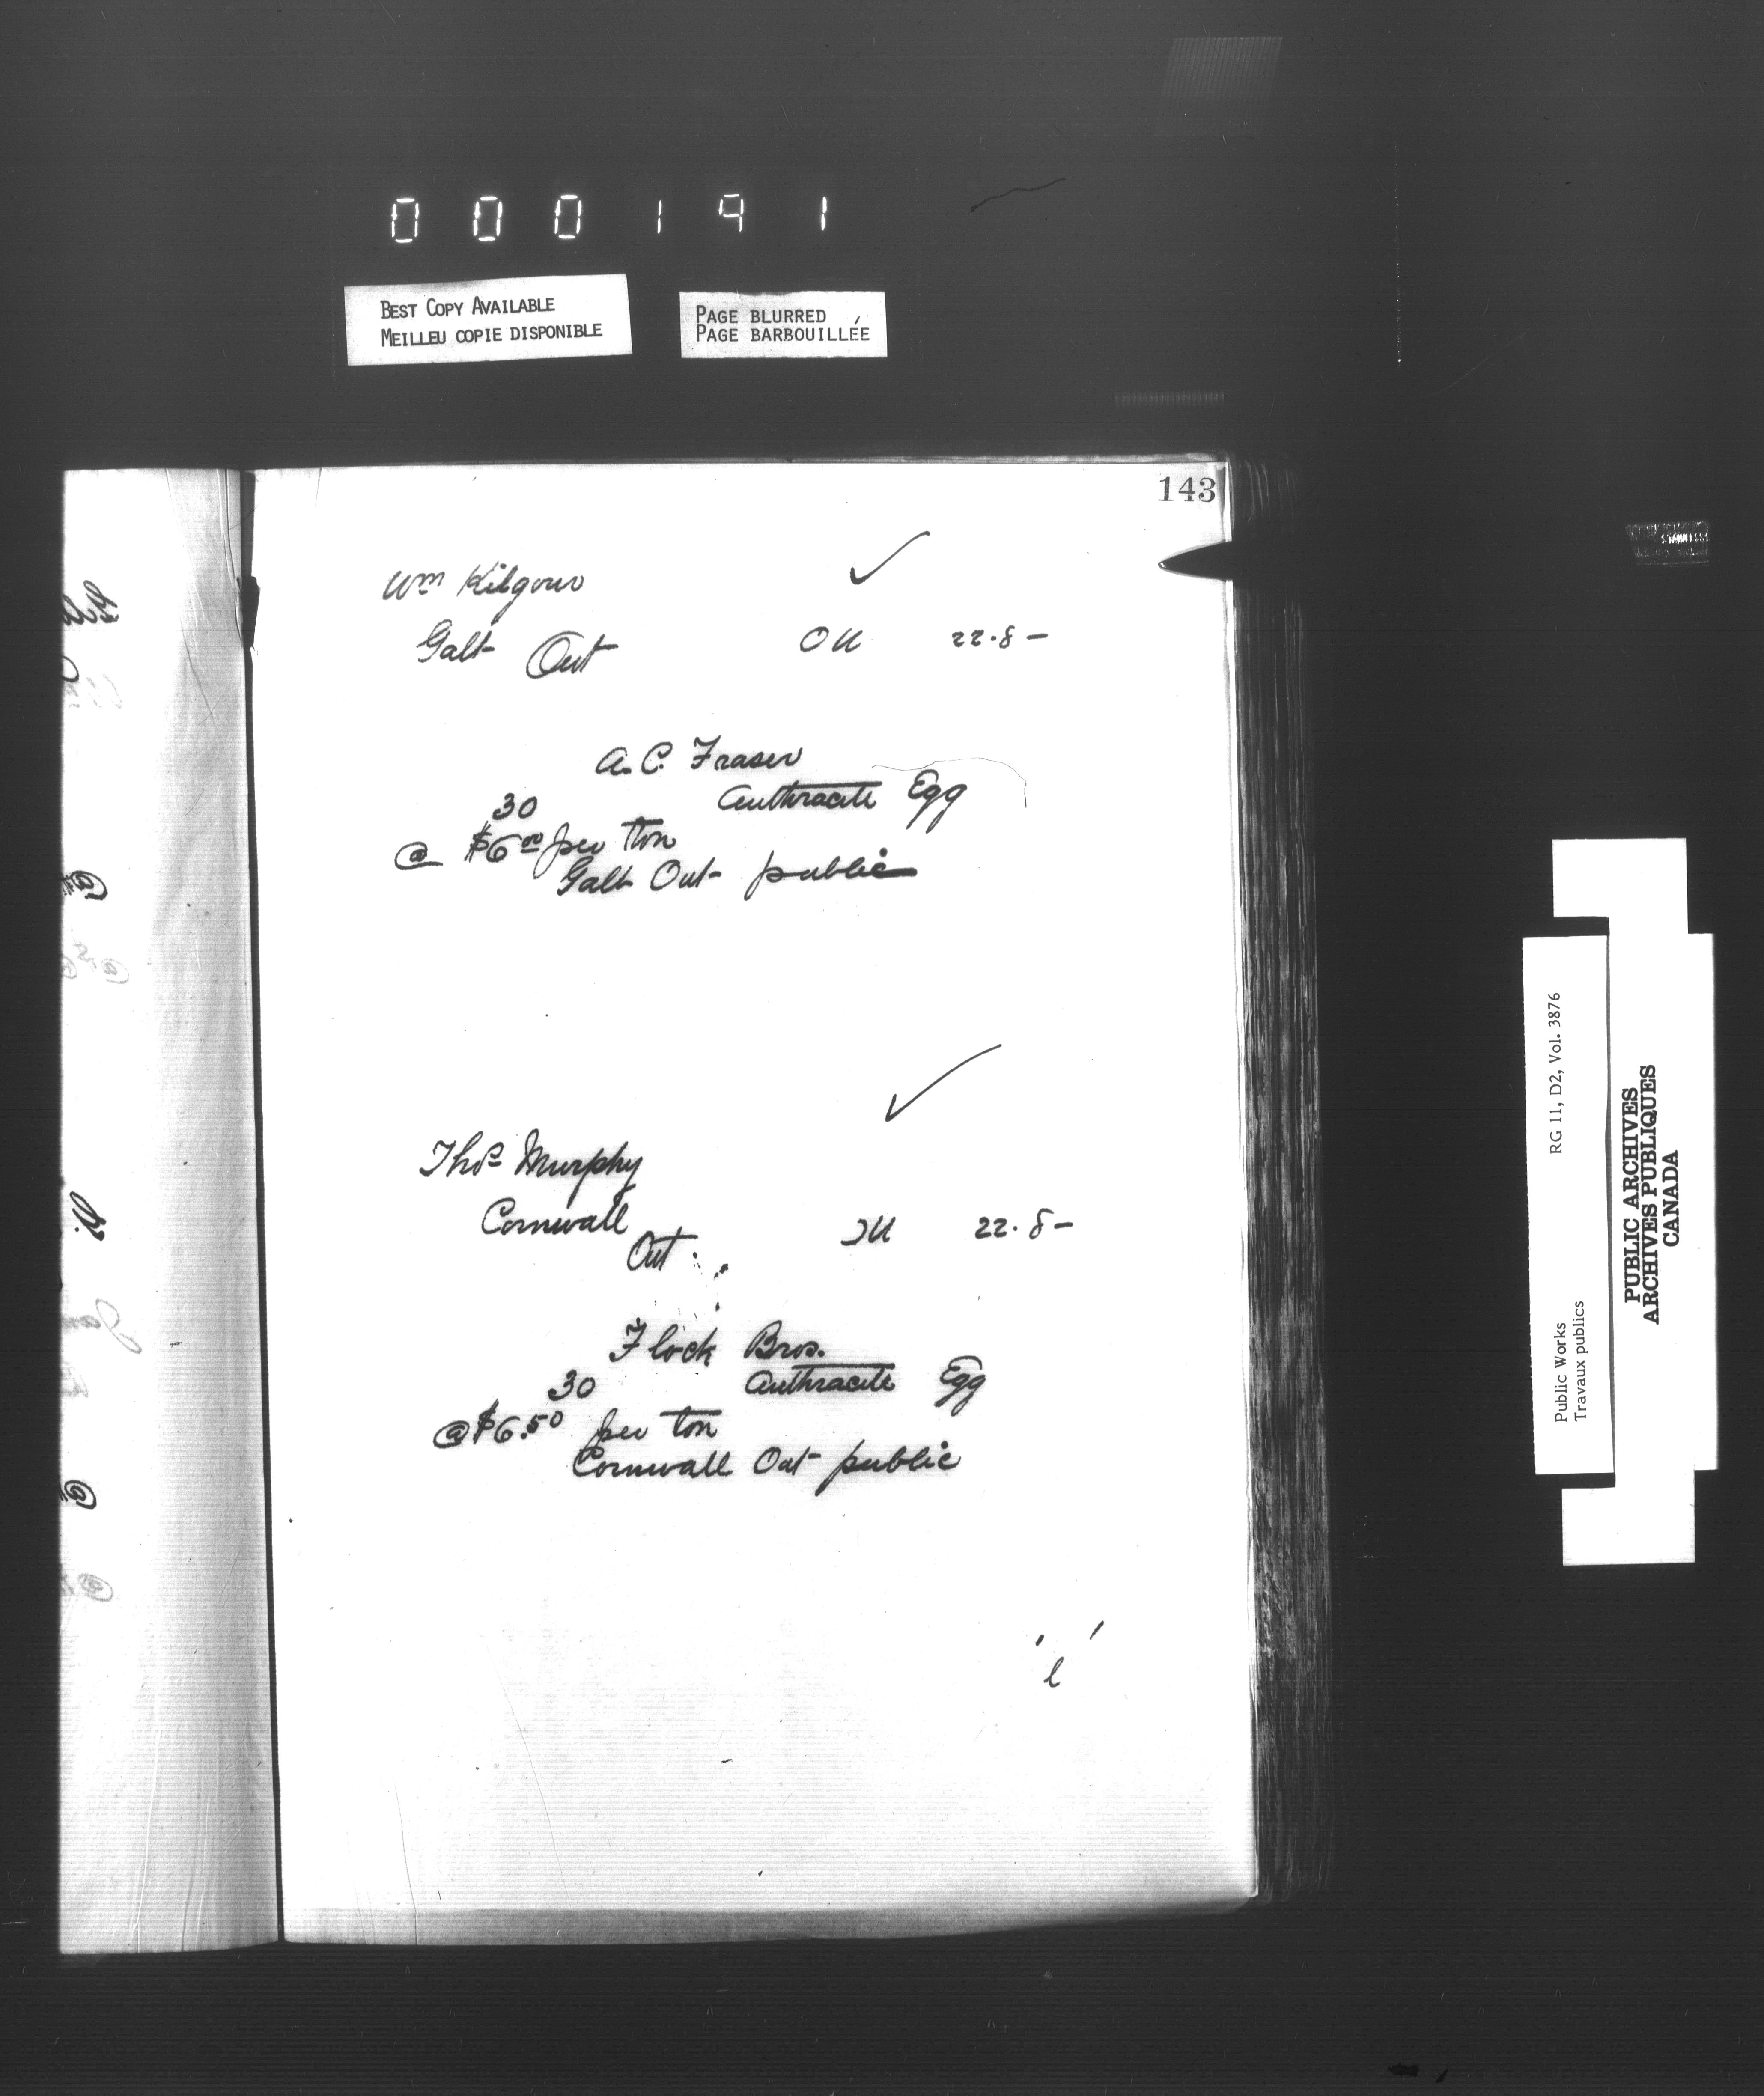 000191
BEST COPY AVAILABLE
MEILLEU COPIE DISPONIBLE
PAGE BLURRED
PAGE BARBOUILLÉE
143
Wm Kilgour
Galt Ont
22.8-
A. C. Fraser
30 Anthracite Egg
@ $6.00 per ton
Galt Ont public
Thos Murphy
Cornwall
Ont
22.8-
Flock Bros.
30 Anthracite Egg
@ $6.50 per ton
Cornwall Ont public
Public Works
Travaux publics
RG 11, D2, Vol. 3876
PUBLIC ARCHIVES
ARCHIVES PUBLIQUES
CANADA